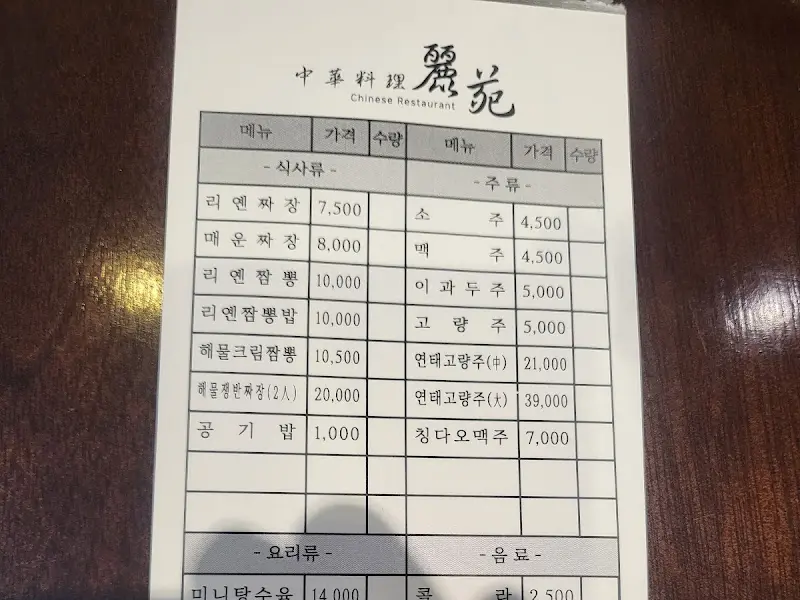 中華料理 麗苑
Chinese Restaurant
메뉴 가격 수량 메뉴 가격 수량
- 식사류 - - 주류 -
리옌짜장 7,500 소주 4,500
매운짜장 8,000 맥주 4,500
리옌짬뽕 10,000 이과두주 5,000
리옌짬뽕밥 10,000 고량주 5,000
해물크림짬뽕 10,500 연태고량주(中) 21,000
해물쟁반짜장(2人) 20,000 연태고량주(大) 39,000
공기밥 1,000 칭다오맥주 7,000
- 요리류 - - 음료 -
미니탕수육 14,000 콜라 2,500